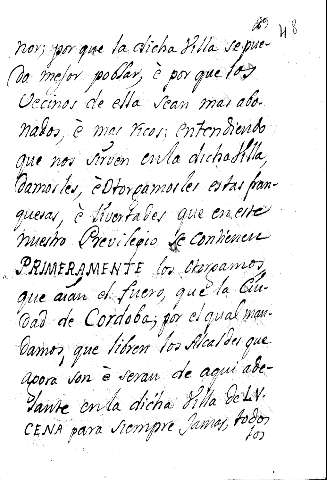 48
nor; por que la dicha Villa se pue-
da mejor poblar, è por que los
Vecinos de ella sean mas abo-
nados, è mas ricos; entendiendo
que nos sirven en la dicha Villa,
damosles, è Otorgamosles estas fran-
quesas, è livertades que en este
nuestro Previlegio se contienen
PRIMERAMENTE los otorgamos,
que aian el fuero, que la Ciu-
dad de Cordoba; por el qual man-
damos, que libren los Alcaldes que
agora son è seran de aqui ade-
lante en la dicha Villa de LU-
CENA para siempre Jamas, todos
los